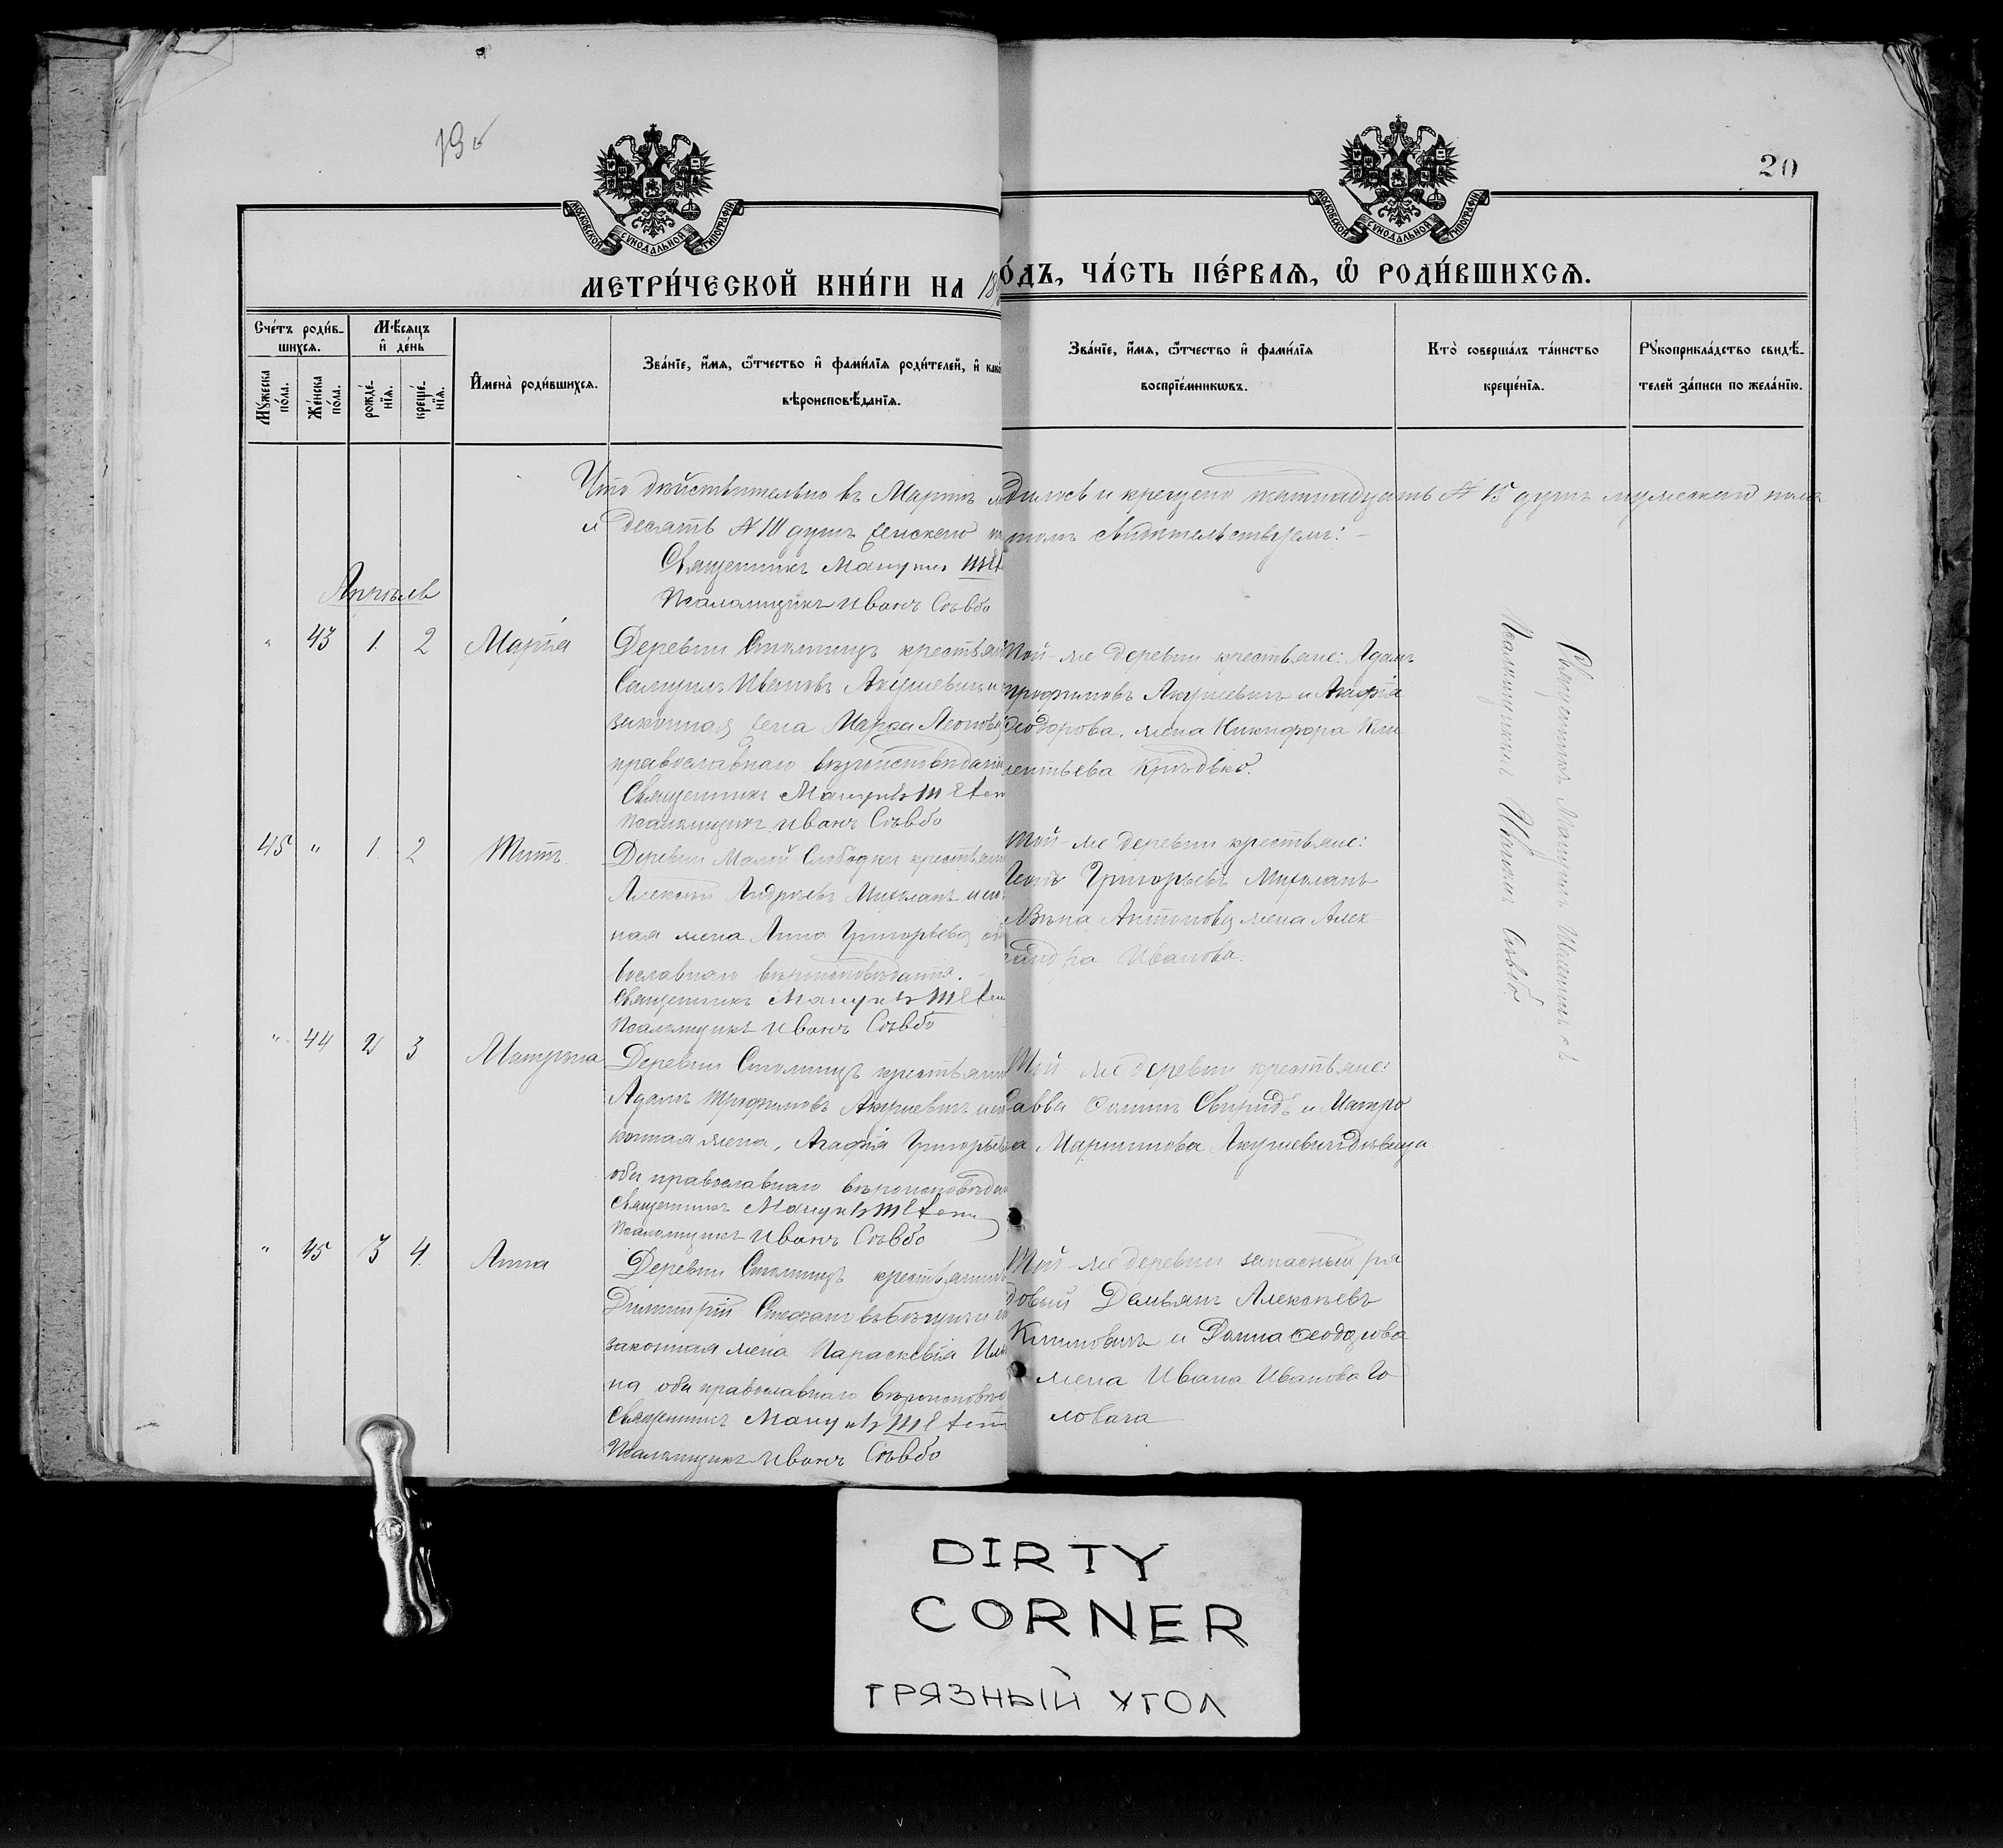 19б
20
МОСКОВСКОЙ СУНОДАЛЬНОЙ ТИПОГРАФІИ
МОСКОВСКОЙ СУНОДАЛЬНОЙ ТИПОГРАФІИ
МЕТРИ́ЧЕСКОЙ КНИ́ГИ НА 18
О́ДЪ, ЧА́СТЬ ПЕ́РВАѦ, Ѡ҆ РОДИ́ВШИХСѦ.
Сче́тъ роди́в-
шихсѧ.
Мꙋжеска по́ла.
Же́нска по́ла.
Мѣ́сѧцъ
и҆ де́нь
рожде́-
нїѧ.
креще́-
нїѧ.
И҆мена̀ роди́вшихсѧ.
Зва́нїе, и҆́мѧ, ѻ҆́тчество и҆ фами́лїѧ роди́телей, и҆ как
вѣроисповѣ́данїѧ.
Зва́нїе, и҆́мѧ, ѻ҆́тчество и҆ фами́лїѧ
воспрїе́мникѡвъ.
Кто̀ соверша́лъ та́инство
креще́нїѧ.
Рꙋкоприкла́дство свидѣ́-
телей за́писи по жела́нїю.
Что действительно въ Мартѣ
дилось и крещено пятнадцать № 15 душъ мужескаго пола
и десять № 10 душъ женскаго
свидѣтельствуемъ:
Священникъ Мануилъ
Псаломщикъ Иванъ Соѣвбо
Апрѣль
" 43 1. 2 Марѳа
Деревни Столпищъ крестьян
Самуилъ Ивановъ Акушевичъ и
законная жена Марѳа Леонова
православнаго вѣроисповѣдан
Священникъ Мануилъ
Псаломщикъ Иванъ Соѣвбо
Той-же деревни крестьяне: Адамъ
Трофимовъ Акушевичъ и Агафія
Ѳеодорова, жена Никифора Кли
ментьева
45 " 1. 2 Титъ
Деревни Малой-Слободки крестьян
Алексѣй Андреевъ Михолапъ и
ная жена Анна Григорьева об
вославнаго вѣроисповѣданія.
Священникъ Мануилъ
Псаломщикъ Иванъ Соѣвбо
Той-же деревни крестьяне:
Григорьевъ Михолапъ
Антонова жена Алек-
сандра Иванова.
" 44 2 3 Матрона
Деревни Столпищъ крестьянин
Адамъ Трофимовъ Акушевичъ и
конная жена, Агафія Григорьев
оба православнаго вѣроисповѣдан
Священникъ Мануилъ
Псаломщикъ Иванъ Соѣвбо
Той-же деревни крестьяне:
Савва Ѳоминъ Свиридъ и Матро
а Мартинова Акушевичъ дѣвица
" 45 3 4. Анна
Деревни Столпищъ крестьянинъ
Димитрій
законная жена Параскевія
на оба православнаго вѣроисповѣд
Священникъ Мануилъ
Псаломщикъ Иванъ Соѣвбо
Той-же деревни запасный ря
довый Демьянъ Алексѣевъ
Климовичъ и Домна Ѳеодорова
жена Ивана Иванова Го
ловача
Священникъ Мануилъ
Псаломщикъ Иванъ
DIRTY
CORNER
ГРЯЗНЫЙ УГОЛ